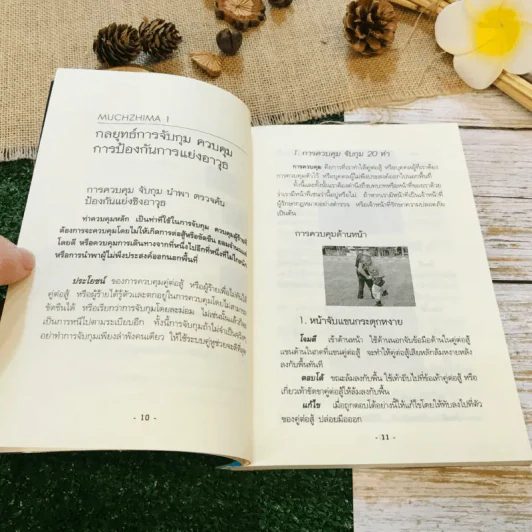 MUCHZHIMA I
กลยุทธ์การจับกุม ควบคุม
การป้องกันการแย่งอาวุธ
การควบคุม จับกุม นำพา ตรวจค้น
ป้องกันแย่งชิงอาวุธ
ท่าควบคุมหลัก เป็นท่าที่ใช้ในการจับกุม ควบคุมผู้ร้าย
ต้องการจะควบคุมโดยไม่ให้เกิดการต่อสู้หรือขัดขืน ยอมจำนน
โดยดี หรือควบคุมการเดินทางจากที่หนึ่งไปอีกที่หนึ่งที่ไม่ไกลนัก
หรือการนำพาผู้ไม่พึงประสงค์ออกนอกพื้นที่
ประโยชน์ ของการควบคุมคู่ต่อสู้ หรือผู้ร้ายเพื่อไม่ทันให้
คู่ต่อสู้ หรือผู้ร้ายได้รู้ตัวและตกอยู่ในการควบคุมโดยไม่สามารถ
ขัดขืนได้ หรือเรียกว่าการจับกุมโดยละม่อม ไม่เช่นนั้นแล้วก็
เป็นการหนีไปตามระเบียบอีก ทั้งนี้การจับกุมถ้าไม่จำเป็นจริง
อย่าทำการจับกุมเพียงลำพังคนเดียว ให้ใช้ระบบคู่หูช่วยจะดีที่สุด
- 10 -
1. การควบคุม จับกุม 20 ท่า
การควบคุม คือการเราทำให้คู่ต่อสู้ หรือบุคคลผู้ที่เราต้อง
การควบคุมตัวไว้ หรือบุคคลผู้ไม่พึงประสงค์ออกไปนอกพื้นที่
เป็นต้น
การควบคุมด้านหน้า
1. หน้าจับแขนกระตุกหงาย
โจมตี เข้าด้านหน้า ใช้ด้านนอกจับข้อมือด้านในคู่ต่อสู้
แขนด้านในกดที่แขนคู่ต่อสู้ จะทำให้คู่ต่อสู้เสียหลักล้มหงายหลัง
ลงกับพื้นทันที
ตอบโต้ ขณะล้มลงกับพื้น ใช้เท้าถีบไปที่ข้อเท้าคู่ต่อสู้ หรือ
เกี่ยวเท้าขัดขาคู่ต่อสู้ให้ล้มลงกับพื้น
แก้ไข เมื่อถูกตอบโต้อย่างนี้ให้แก้ไขโดยให้ทับลงไปที่ตัว
ของคู่ต่อสู้ ปล่อยมือออก
- 11 -